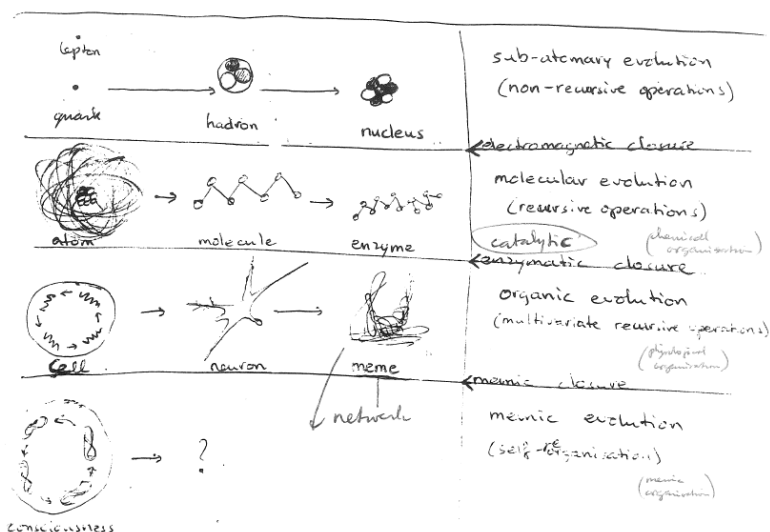 lepton
quark
hadron
nucleus
sub-atomary evolution
(non-recursive operations)
electromagnetic closure
atom
molecule
enzyme
molecular evolution
(recursive operations)
catalytic
(chemical
organisation)
enzymatic closure
cell
neuron
meme
organic evolution
(multivariate recursive operations)
organisation)
memic closure
network
consciousness
?
memic evolution
(memic
organisation)